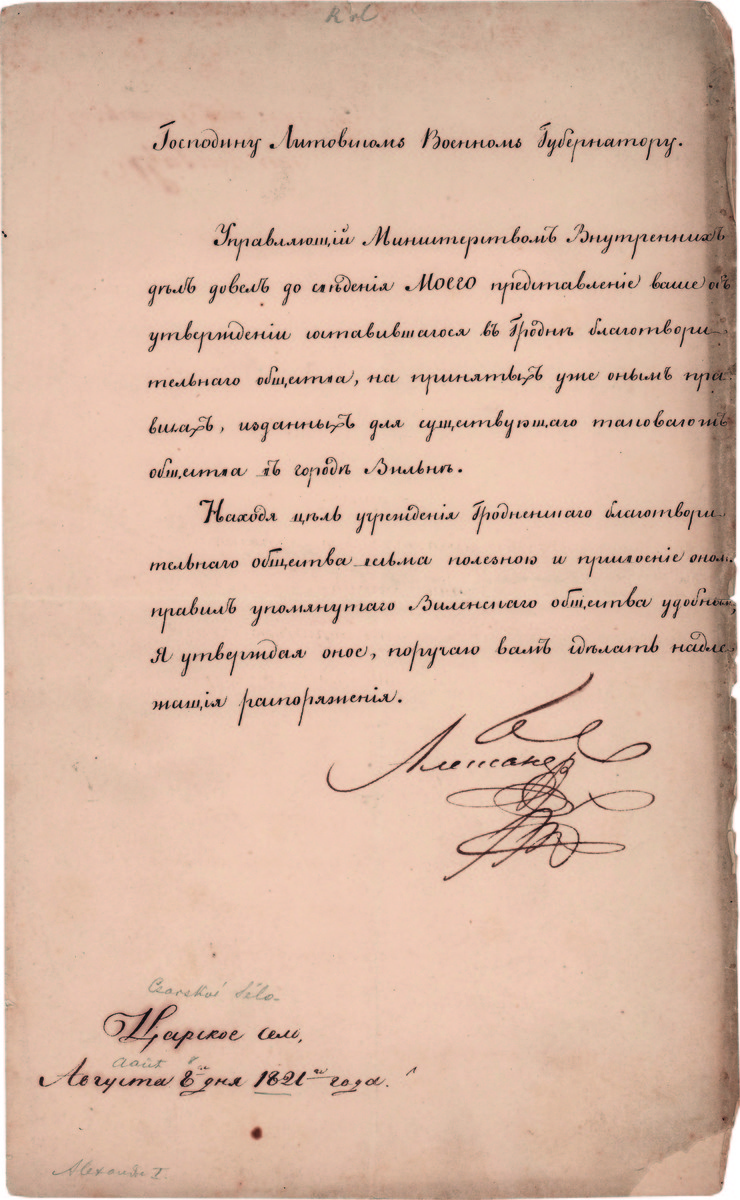 Господину Литовскомъ Военномъ Губернатору.
Управляющій Министерствомъ Внутреннихъ
дѣлъ довелъ до свѣденія МОЕГО представленіе ваше объ
утвержденіи составившагося въ Гроднѣ благотвори-
тельнаго общества, на принятыхъ уже онымъ пра-
вилахъ, изданныхъ для существующаго таковагожъ
общества въ городѣ Вильнѣ.
Находя цѣль учрежденія Гродненскаго благотвори-
тельнаго общества весьма полезною и присвоеніе оному
правилъ упомянутаго Виленскаго общества удобнымъ,
Я утверждая оное, поручаю вамъ сдѣлать надле-
жащія распоряженія.
Александръ
Czarskoï Sélo
Царское село,
Août 8
Августа 8го дня 1821го года.
Alexandre I.